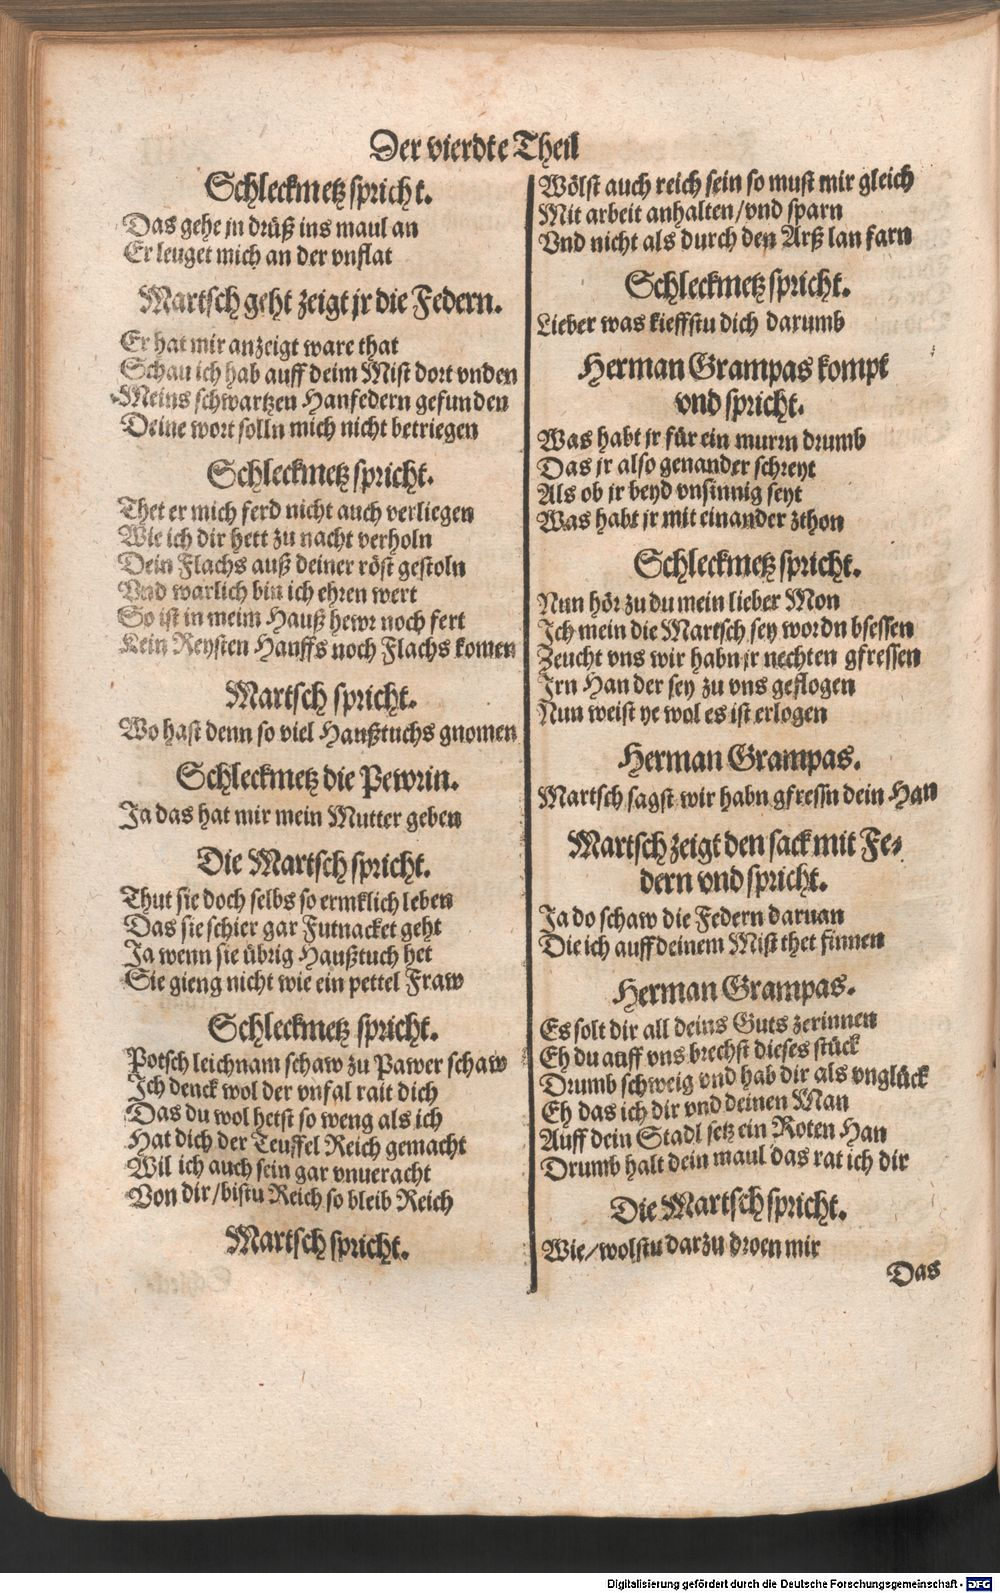 Der vierdte Theil
Schleckmetz spricht.
Das gehe jn drüß ins maul an
Er leuget mich an der vnflat
Martsch geht zeigt jr die Federn.
Er hat mir anzeigt ware that
Schau ich hab auff deim Mist dort vnden
Meins schwartzen Hanfedern gefunden
Deine wort solln mich nicht betriegen
Schleckmetz spricht.
Thet er mich ferd nicht auch verliegen
Wie ich dir hett zu nacht verholn
Dein Flachs auß deiner röst gestoln
Vnd warlich bin ich ehren wert
So ist in meim Hauß hewr noch fert
Kein Reysten Hanffs noch Flachs komen
Martsch spricht.
Wo hast denn so viel Haußtuchs gnomen
Schleckmetz die Pewrin.
Ja das hat mir mein Mutter geben
Die Martsch spricht.
Thut sie doch selbs so ermklich leben
Das sie schier gar Futnacket geht
Ja wenn sie übrig Haußtuch het
Sie gieng nicht wie ein pettel Fraw
Schleckmetz spricht.
Potsch leichnam schaw zu Pawer schaw
Ich denck wol der vnfal rait dich
Das du wol hetst so weng als ich
Hat dich der Teuffel Reich gemacht
Wil ich auch sein gar vnueracht
Von dir/bistu Reich so bleib Reich
Martsch spricht.
Wölst auch reich sein so must mir gleich
Mit arbeit anhalten/vnd sparn
Vnd nicht als durch den Arß lan farn
Schleckmetz spricht.
Lieber was kieffstu dich darumb
Herman Grampas kompt
vnd spricht.
Was habt jr für ein murm drumb
Das jr also genander schreyt
Als ob jr beyd vnsinnig seyt
Was habt jr mit einander zthon
Schleckmetz spricht.
Nun hör zu du mein lieber Mon
Ich mein die Martsch sey wordn bsessen
Zeucht vns wir habn jr nechten gfressen
Irn Han der sey zu vns geflogen
Nun weist ye wol es ist erlogen
Herman Grampas.
Martsch sagst wir habn gfressn dein Han
Martsch zeigt den sack mit Fe-
dern vnd spricht.
Ja do schaw die Federn daruan
Die ich auff deinem Mist thet finnen
Herman Grampas.
Es solt dir all deins Guts zerinnen
Eh du auff vns brechst dieses stück
Drumb schweig vnd hab dir als vnglück
Eh das ich dir vnd deinen Man
Auff dein Stadl setz ein Roten Han
Drumb halt dein maul das rat ich dir
Die Martsch spricht.
Wie/wolstu darzu droen mir
Das
Digitalisierung gefördert durch die Deutsche Forschungsgemeinschaft - DFG